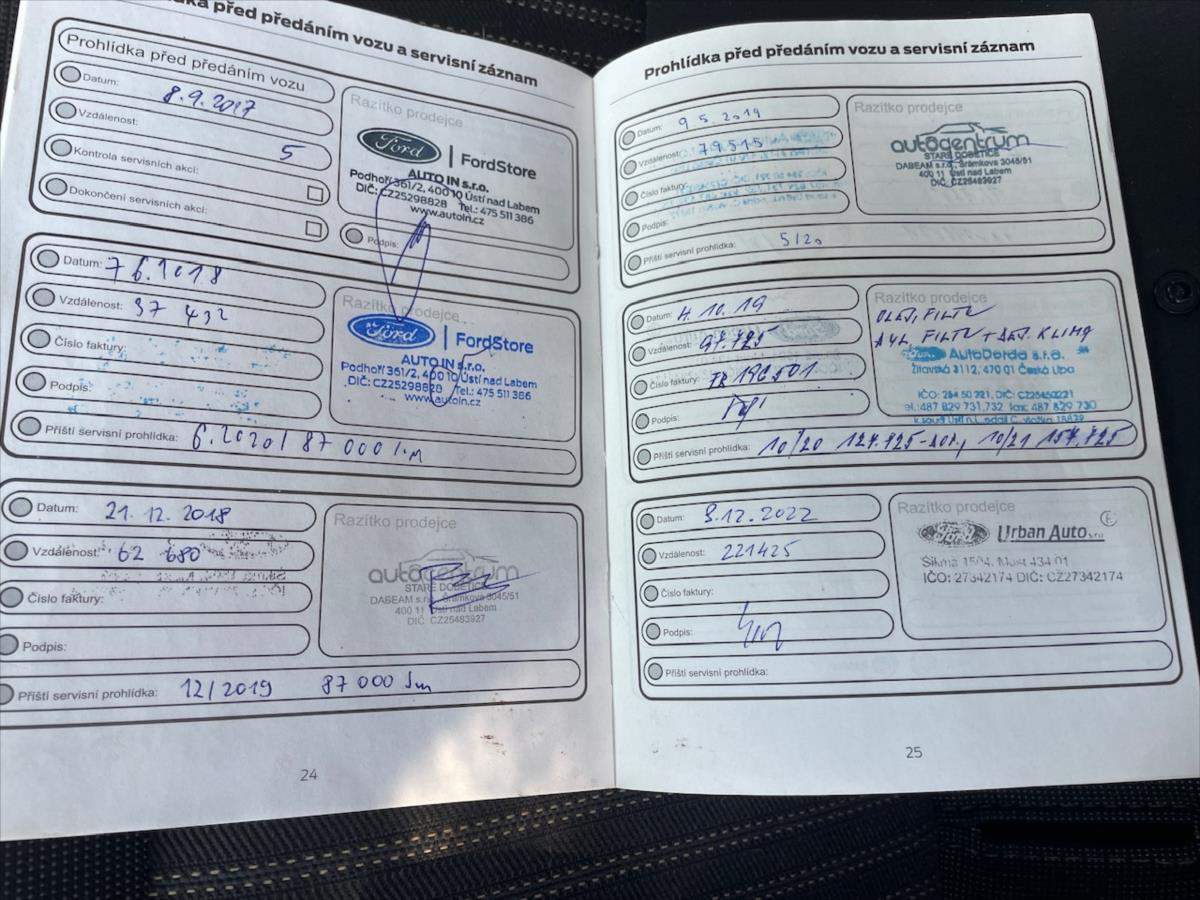 ka před předáním vozu a servisní záznam
Prohlídka před předáním vozu
Datum: 8.9.2017
Vzdálenost: 5
Kontrola servisních akcí:
Dokončení servisních akcí:
Razítko prodejce
Ford FordStore
AUTO IN s.r.o.
Podhoří 361/2, 400 10 Ústí nad Labem
DIČ: CZ25298828 Tel.: 475 511 386
www.autoin.cz
Podpis:
Datum: 7 6.2018
Vzdálenost: 37 432
Číslo faktury:
Podpis:
Razítko prodejce
Ford FordStore
AUTO IN s.r.o.
Podhoří 361/2, 400 10 Ústí nad Labem
DIČ: CZ25298828 Tel.: 475 511 386
www.autoin.cz
Příští servisní prohlídka: 6.2020/ 87 000 km
Datum: 21.12.2018
Vzdálenost: 62 680
Číslo faktury:
Podpis:
Razítko prodejce
autocentrum
STARÉ DOBĚTICE
DABEAM s.r.o., Šrámkova 3045/51
400 11 Ústí nad Labem
DIČ: CZ25483927
Příští servisní prohlídka: 12/2019 87 000 km
24
Prohlídka před předáním vozu a servisní záznam
Datum: 9 5 2019
Vzdálenost: 79515
Číslo faktury:
Podpis:
Razítko prodejce
autocentrum
STARÉ DOBĚTICE
DABEAM s.r.o., Šrámkova 3045/51
400 11 Ústí nad Labem
DIČ: CZ25483927
Příští servisní prohlídka: 5/20
Datum: 4.10.19
Vzdálenost: 97.725
Číslo faktury:
Podpis:
Razítko prodejce
OLEJ, FILTR
FILTR
KLIMA
AutoDorda s.r.o.
Žitavská 3112, 470 01 Česká Lípa
tel.:487 829 731,732 fax: 487 829 730
Příští servisní prohlídka: 10/20 127.725 10/21 157.725
Datum: 3.12.2022
Vzdálenost: 221425
Číslo faktury:
Podpis:
Razítko prodejce
Ford Urban Auto s.r.o.
IČO: 27342174 DIČ: CZ27342174
Příští servisní prohlídka:
25